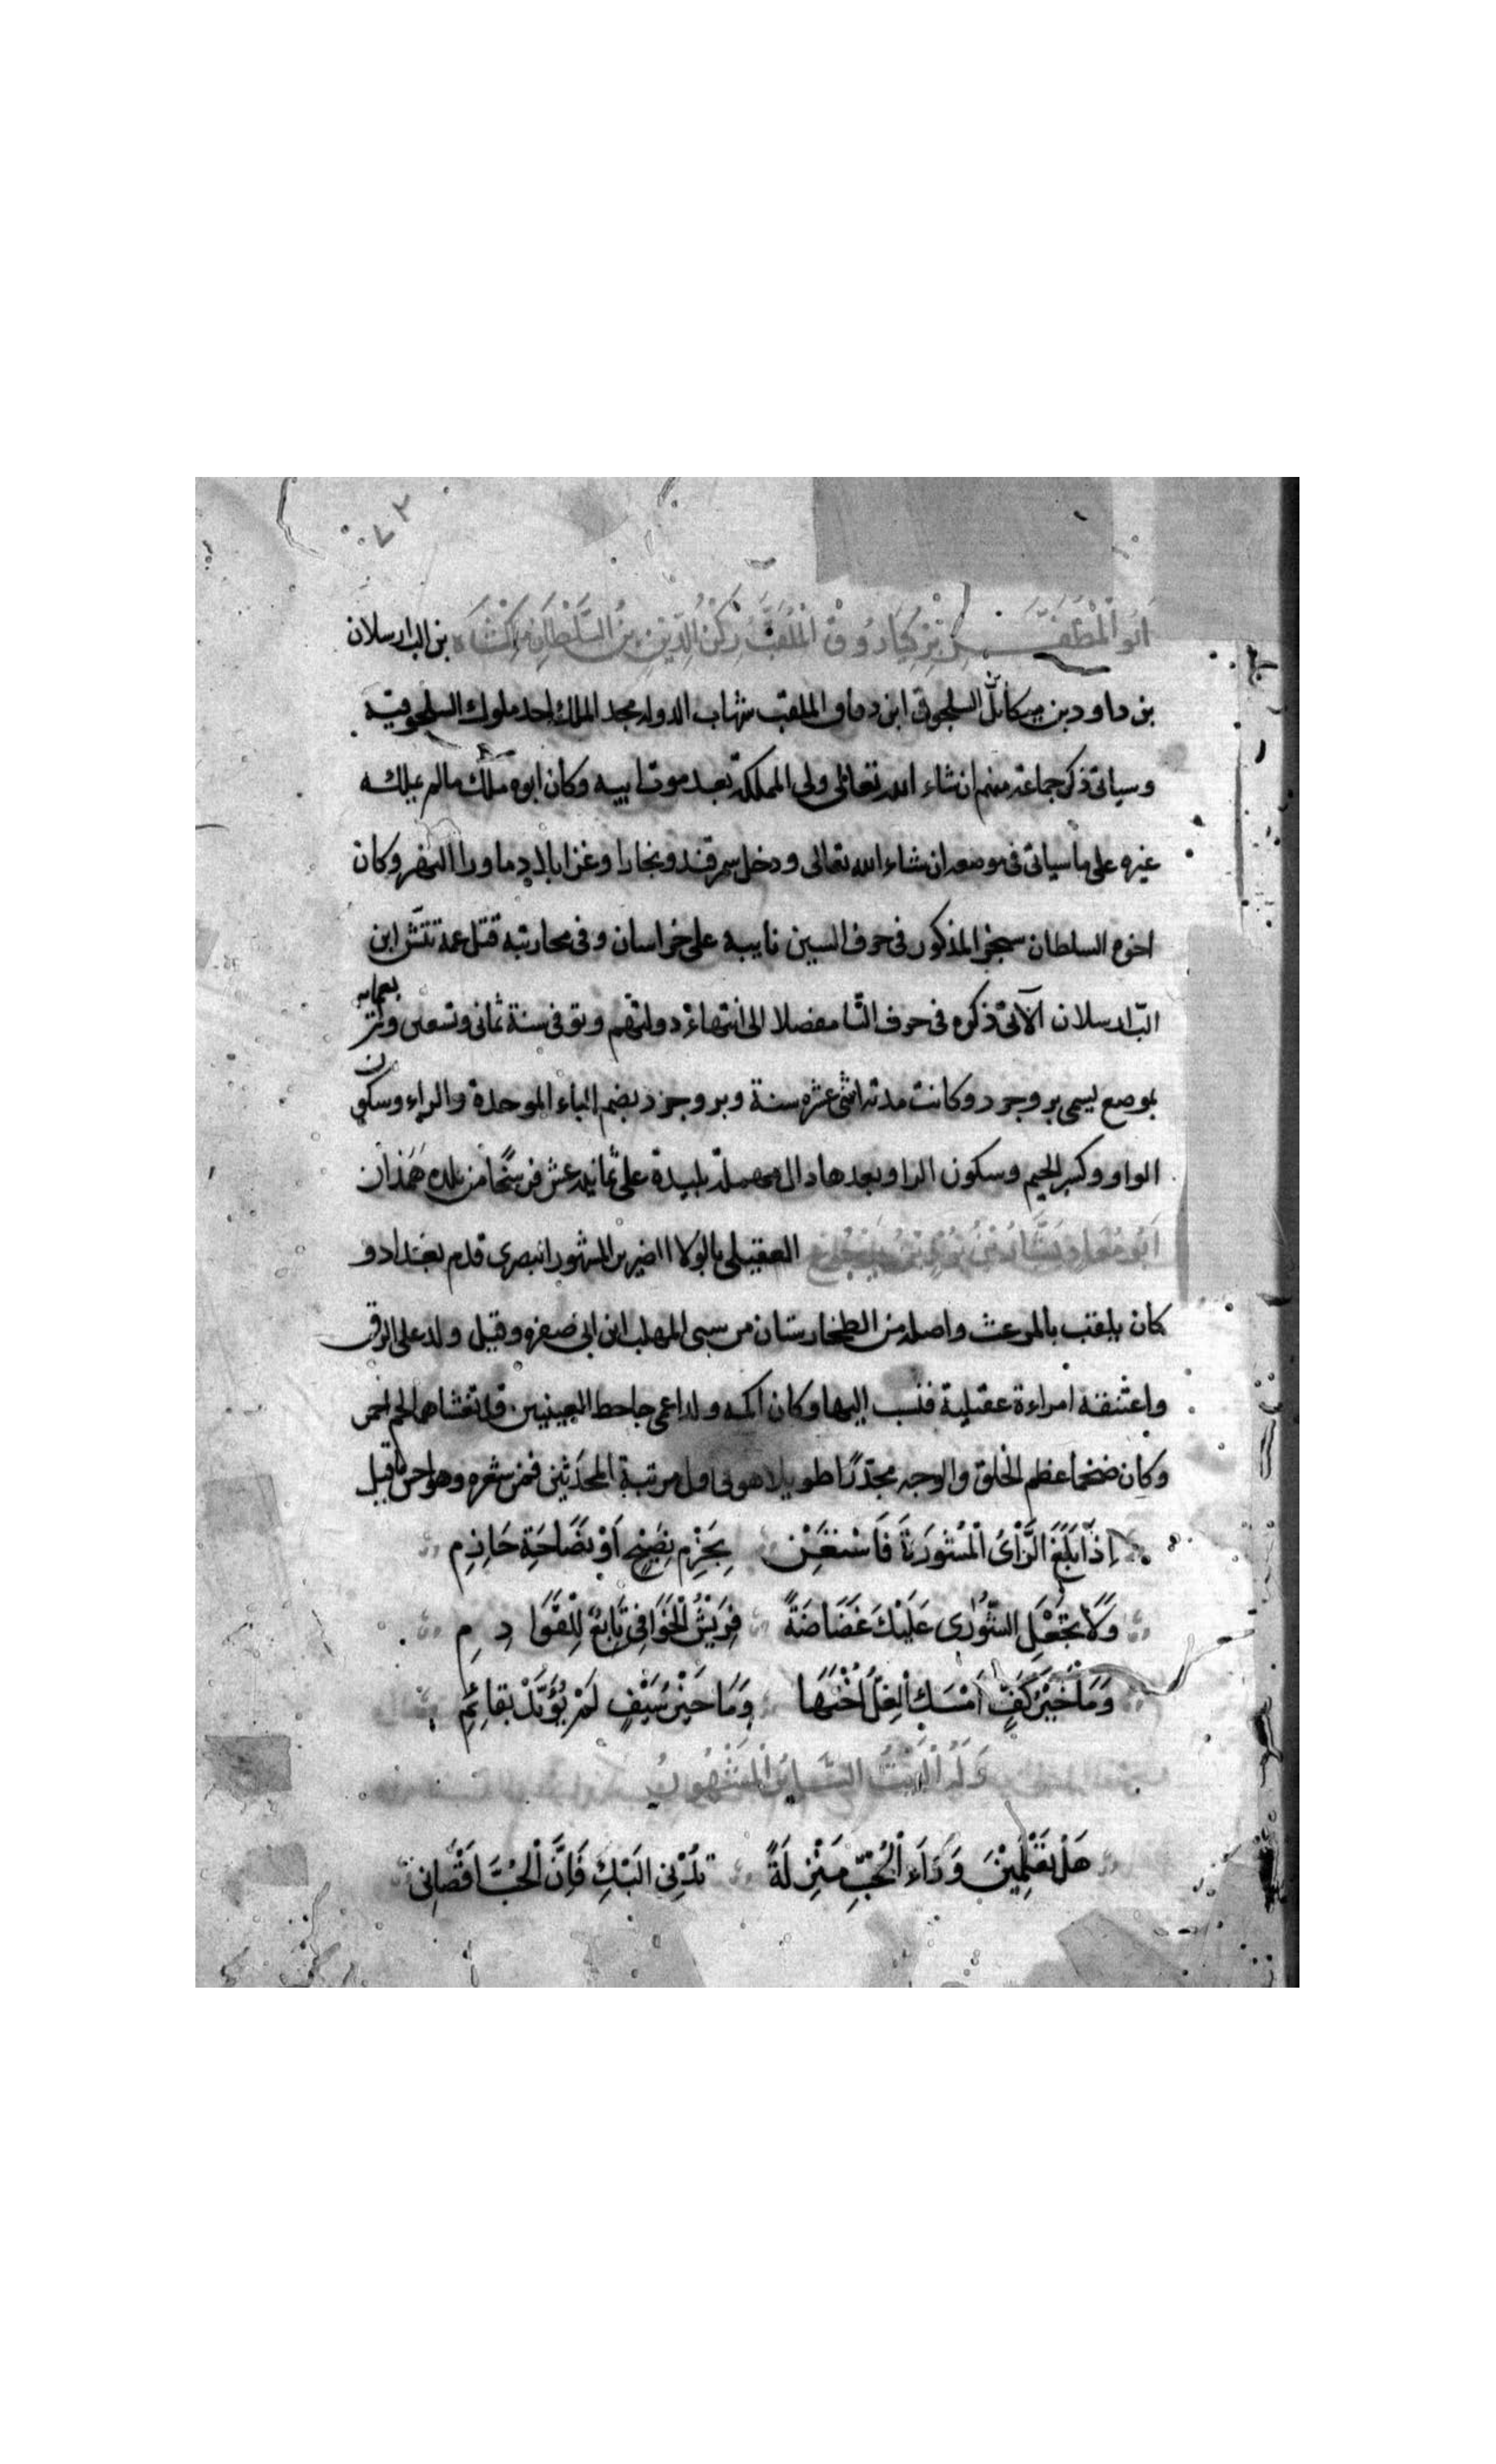 ٧٢
اَبُو الْمُظَفَّر بَرْكِيَارُوقْ الْمُلَقَّبُ رُكْنُ الدِّينِ بنُ السُّلْطَانِ مَلِكْشَاه بن الب ارسلان
بن داود بن ميكائل السلجوقى ابن دقاق الملقب شهاب الدوله مجد الملك احد ملوك السلجوقيه
وسياتى ذكر جماعة منهم ان شاء الله تعالى ولى المملكة بعد موت ابيه وكان ابوه ملك مالم يملكه
غيره على ما سياتى فى موضعه ان شاء الله تعالى ودخل سمرقند وبخارا وغزا بلاد ماورا النهر وكان
اخوه السلطان سنجر المذكور فى حرف السين نايبه على خراسان وفى محاربته قتل عمه تتش ابن
الب ارسلان الآتى ذكره فى حرف التا مفصلا الى انتهاء دولتهم وتوفى سنة ثمانى وتسعين واربعمايه
بموضع يسمى بروجرد وكانت مدته اثنى عشره سنة وبروجرد بضم الباء الموحدة والراء وسكون
الواو وكسر الجيم وسكون الرا وبعدها دال مهملة بليدة على ثمانيه عشر فرسخًا من بلده همذان
اَبُو مُعَاذ بَشَّارُ بْنُ بُرْدِ بْنِ يَرْجُوخ العقيلى بالولا الضرير المشهور انبصرى قدم بغداد و
كان يلقب بالمرعث واصله من الطخارستان من سبى المهلب ابن ابى صفره وقيل ولد على الرق
واعتقته امراءة عقيلية فنسب اليها وكان اكمه ولد اعمى جاحط العينيين قد تغشاهما لحم احمر
وكان ضخما عظم الخلق والوجه مجدّرًا طويلا هو فى اول مرتبة المحدثين فمن شعره وهو احسن ما قيل
اِذَا بَلَغَ الرَّأْىُ الْمَشُورَةَ فَاسْتَعِنْ بِحَزْمِ نَصِيْحٍ اَوْ نَصَاحَةِ حَازِمِ
وَلَا تَجْعَلِ الشُّورٰى عَلَيْكَ غَضَاضَةً فَرِيْشُ الْخَوَافِى تَابِعٌ لِلْقَوَادِمِ
وَمَا خَيْرُ كَفٍّ اَمْسَكَ الْغِلُّ اُخْتَهَا وَمَا خَيْرُ سَيْفٍ لَمْ يُؤَيَّدْ بِقَائِمِ
وَلَهُ الْبَيْتُ السَّايِرُ الْمَشْهُورُ
هَلْ تَعْلَمِيْنَ وَرَاءَ الْحُبِّ مَنْزِلَةً تُدْنِى الَيْكِ فَاِنَّ الْحُبَّ اَقْصَانِى